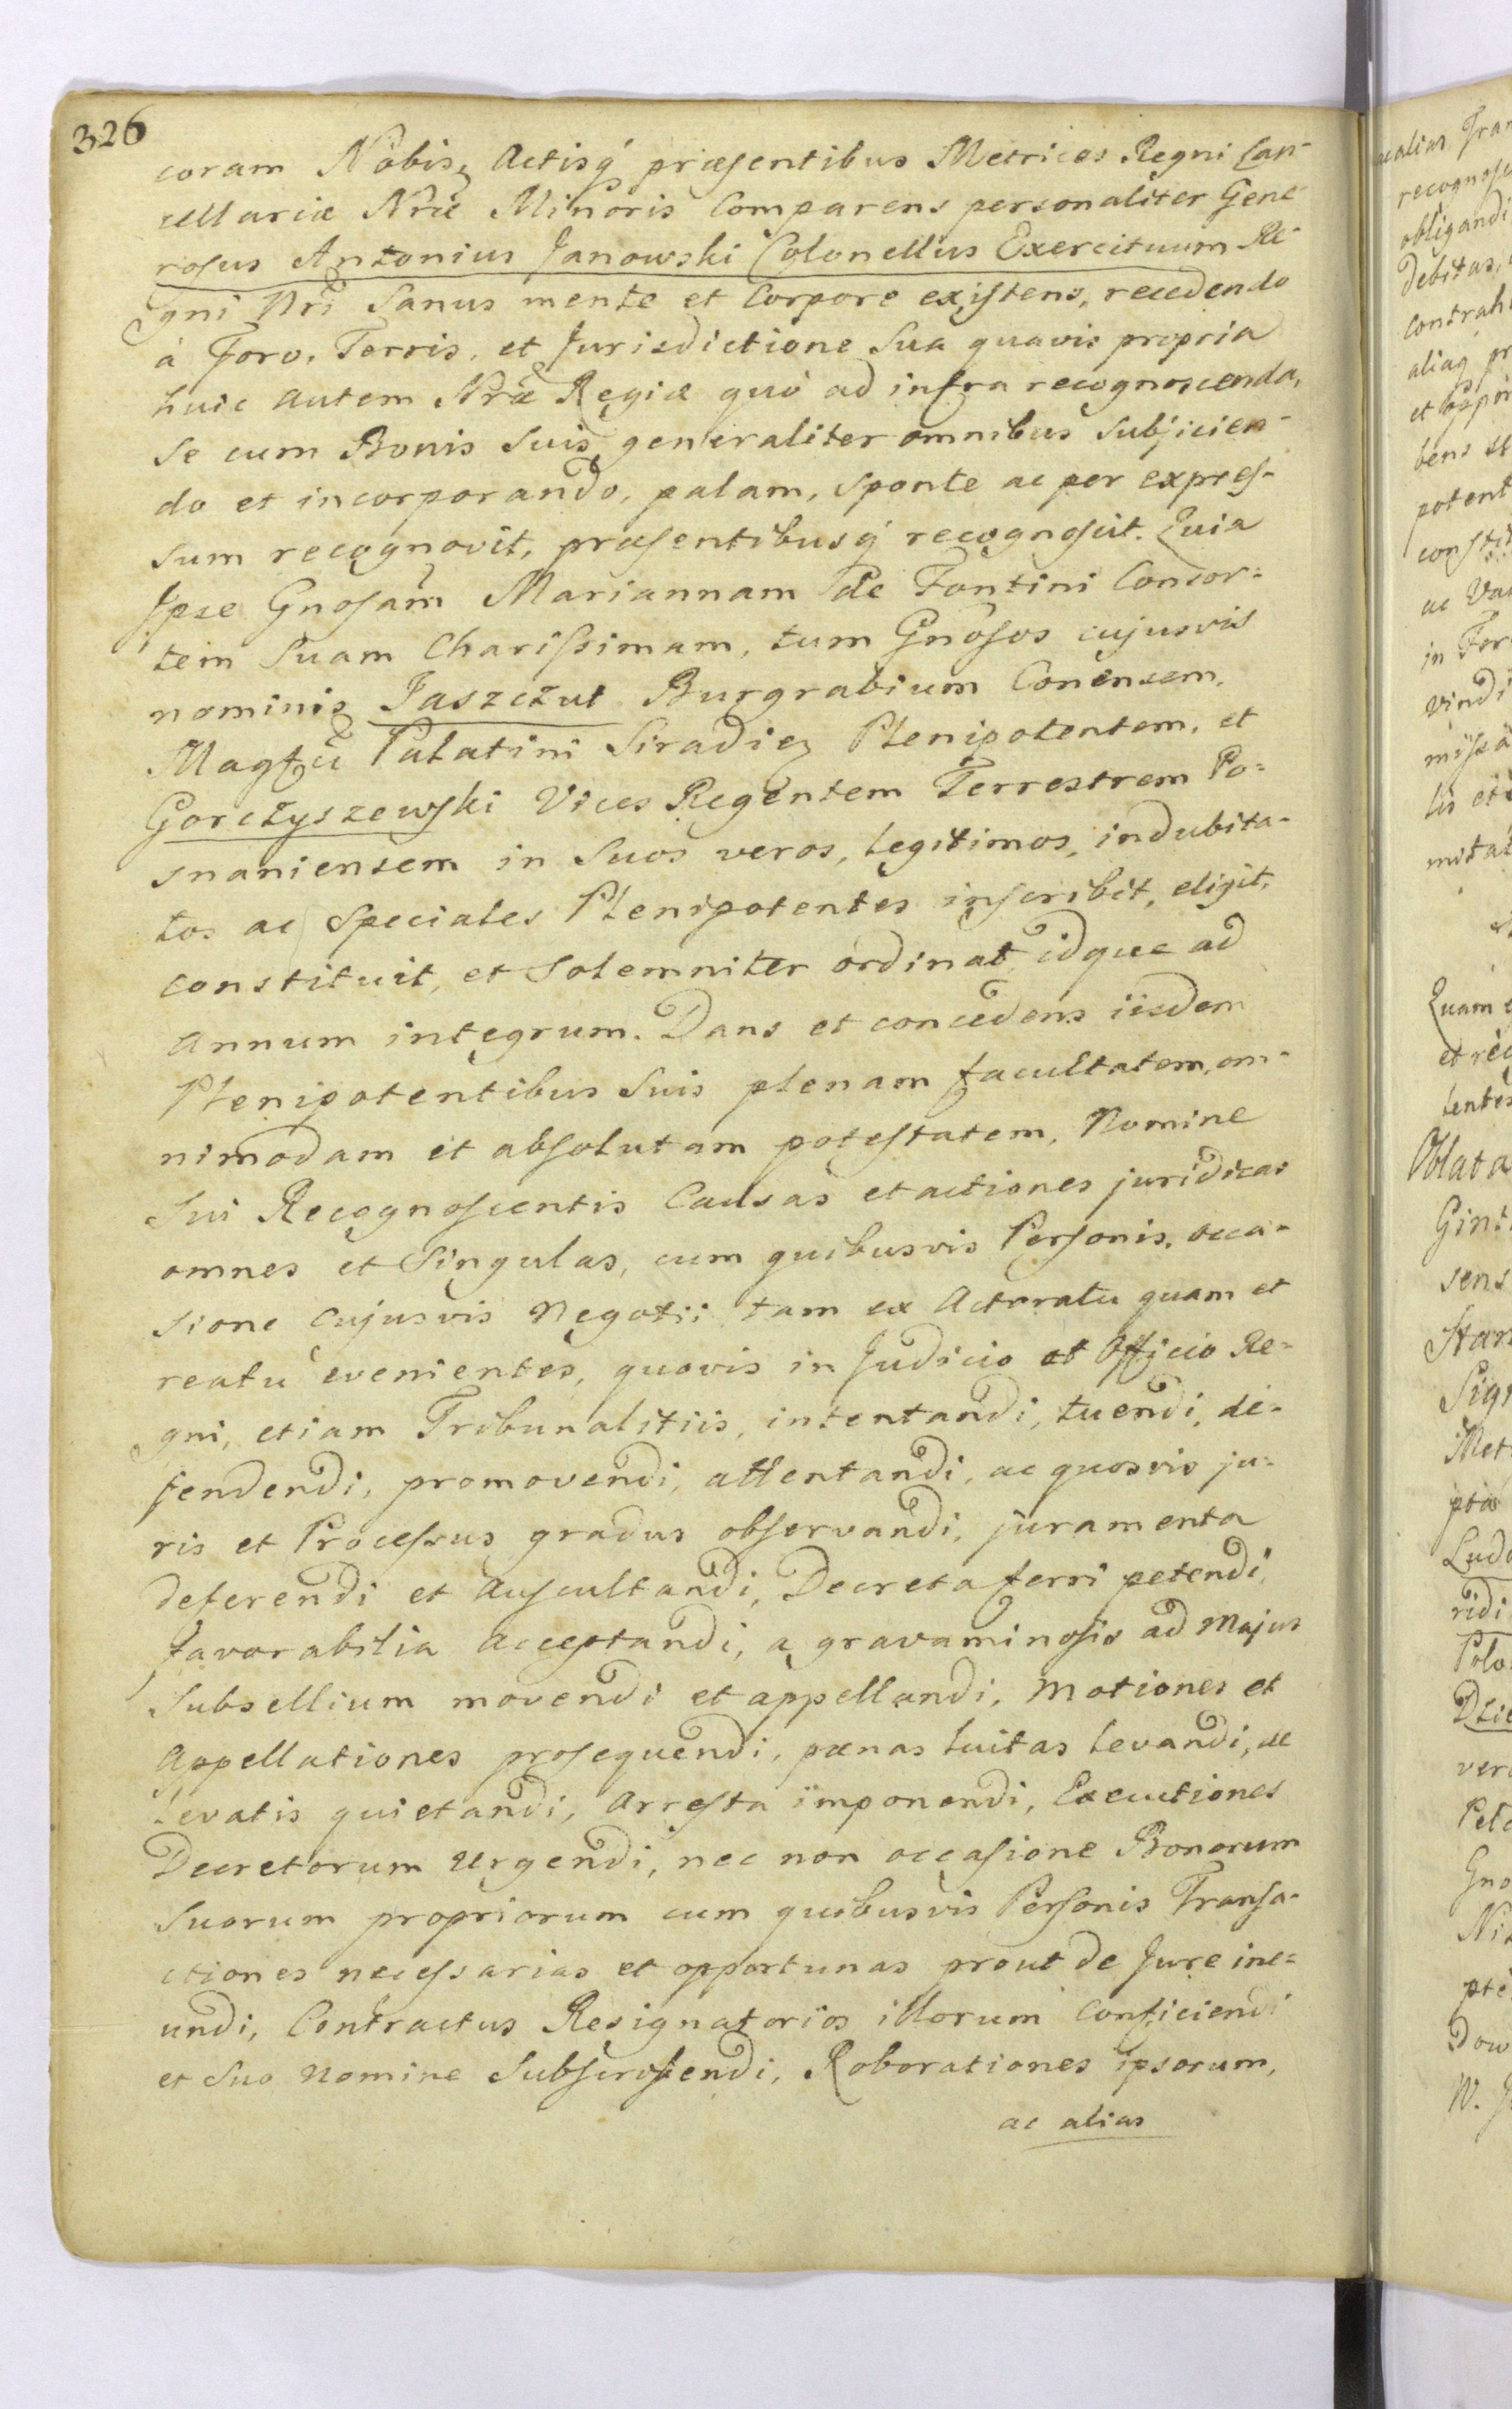 326
coram Nobis, Actisq́ præsentibus Metrices Regni Can-
cellariæ Nr̃æ Minoris Comparens personaliter Gene-
rosus Antonius Janowski Colonellus Exercituum Re-
gni Nr̃i Sanus mente et Corpore existens, recedendo
à Foro, Terris, et Jurisdictione Sua quavis propria
huic autem Nr̃æ Regiæ quò ad infra recognoscenda,
se cum Bonis Suis generaliter omnibus Subjicien-
do et incorporando, palam, sponte ac per expres-
sum recognovit, præsentibusq́ recognoscit. Quia
Ipse Gnosam̃ Mariannam de Fontini Consor=
tem Suam Charissimam, tum Gños̃os cujusvis
nominis Jaszczut Burgrabium Conensem,
Magfci Palatini Siradiæ Plenipotentem, et
Gorczyszewski Vices Regentem Terrestrem Po=
snaniensem in Suos veros, legitimos, indubita-
tos ac Speciales Plenipotentes inscribit, eligit,
constituit, et Solemniter ordinat, idque ad
Annum integrum. Dans et concedens iisdem
Plenipotentibus Suis plenam facultatem, om-
nimodam et absolutam potestatem, Nomine
Sui Recognoscentis Causas et actiones juridicas
omnes et Singulas, cum quibusvis Personis, occa-
sione cujusvis Negotii, tam ex Actoratu quam et
reatu evenientes, quovis in Judicio et Officio Re=
gni, etiam Tribunalitiis, intentandi, tuendi, de-
fendendi, promovendi, attentandi, ac quosvis ju-
ris et Processus gradus observandi, juramenta
deferendi et Auscultandi, Decreta ferri petendi,
favorabilia acceptandi, a gravaminosis ad Majus
Subsellium movendi et appellandi, Motiones et
Appellationes prosequendi, pœnas luitas levandi, de
levatis quietandi, Arresta imponendi, Executiones
Decretorum Urgendi, nec non occasione Bonorum
Suorum propriorum cum quibusvis Personis Transa-
ctiones necessarias et opportunas prout de Jure ine=
undi, Contractus Resignatorios illorum Conficiendi
et Suo Nomine Subscribendi, Roborationes ipsorum,
ac alias